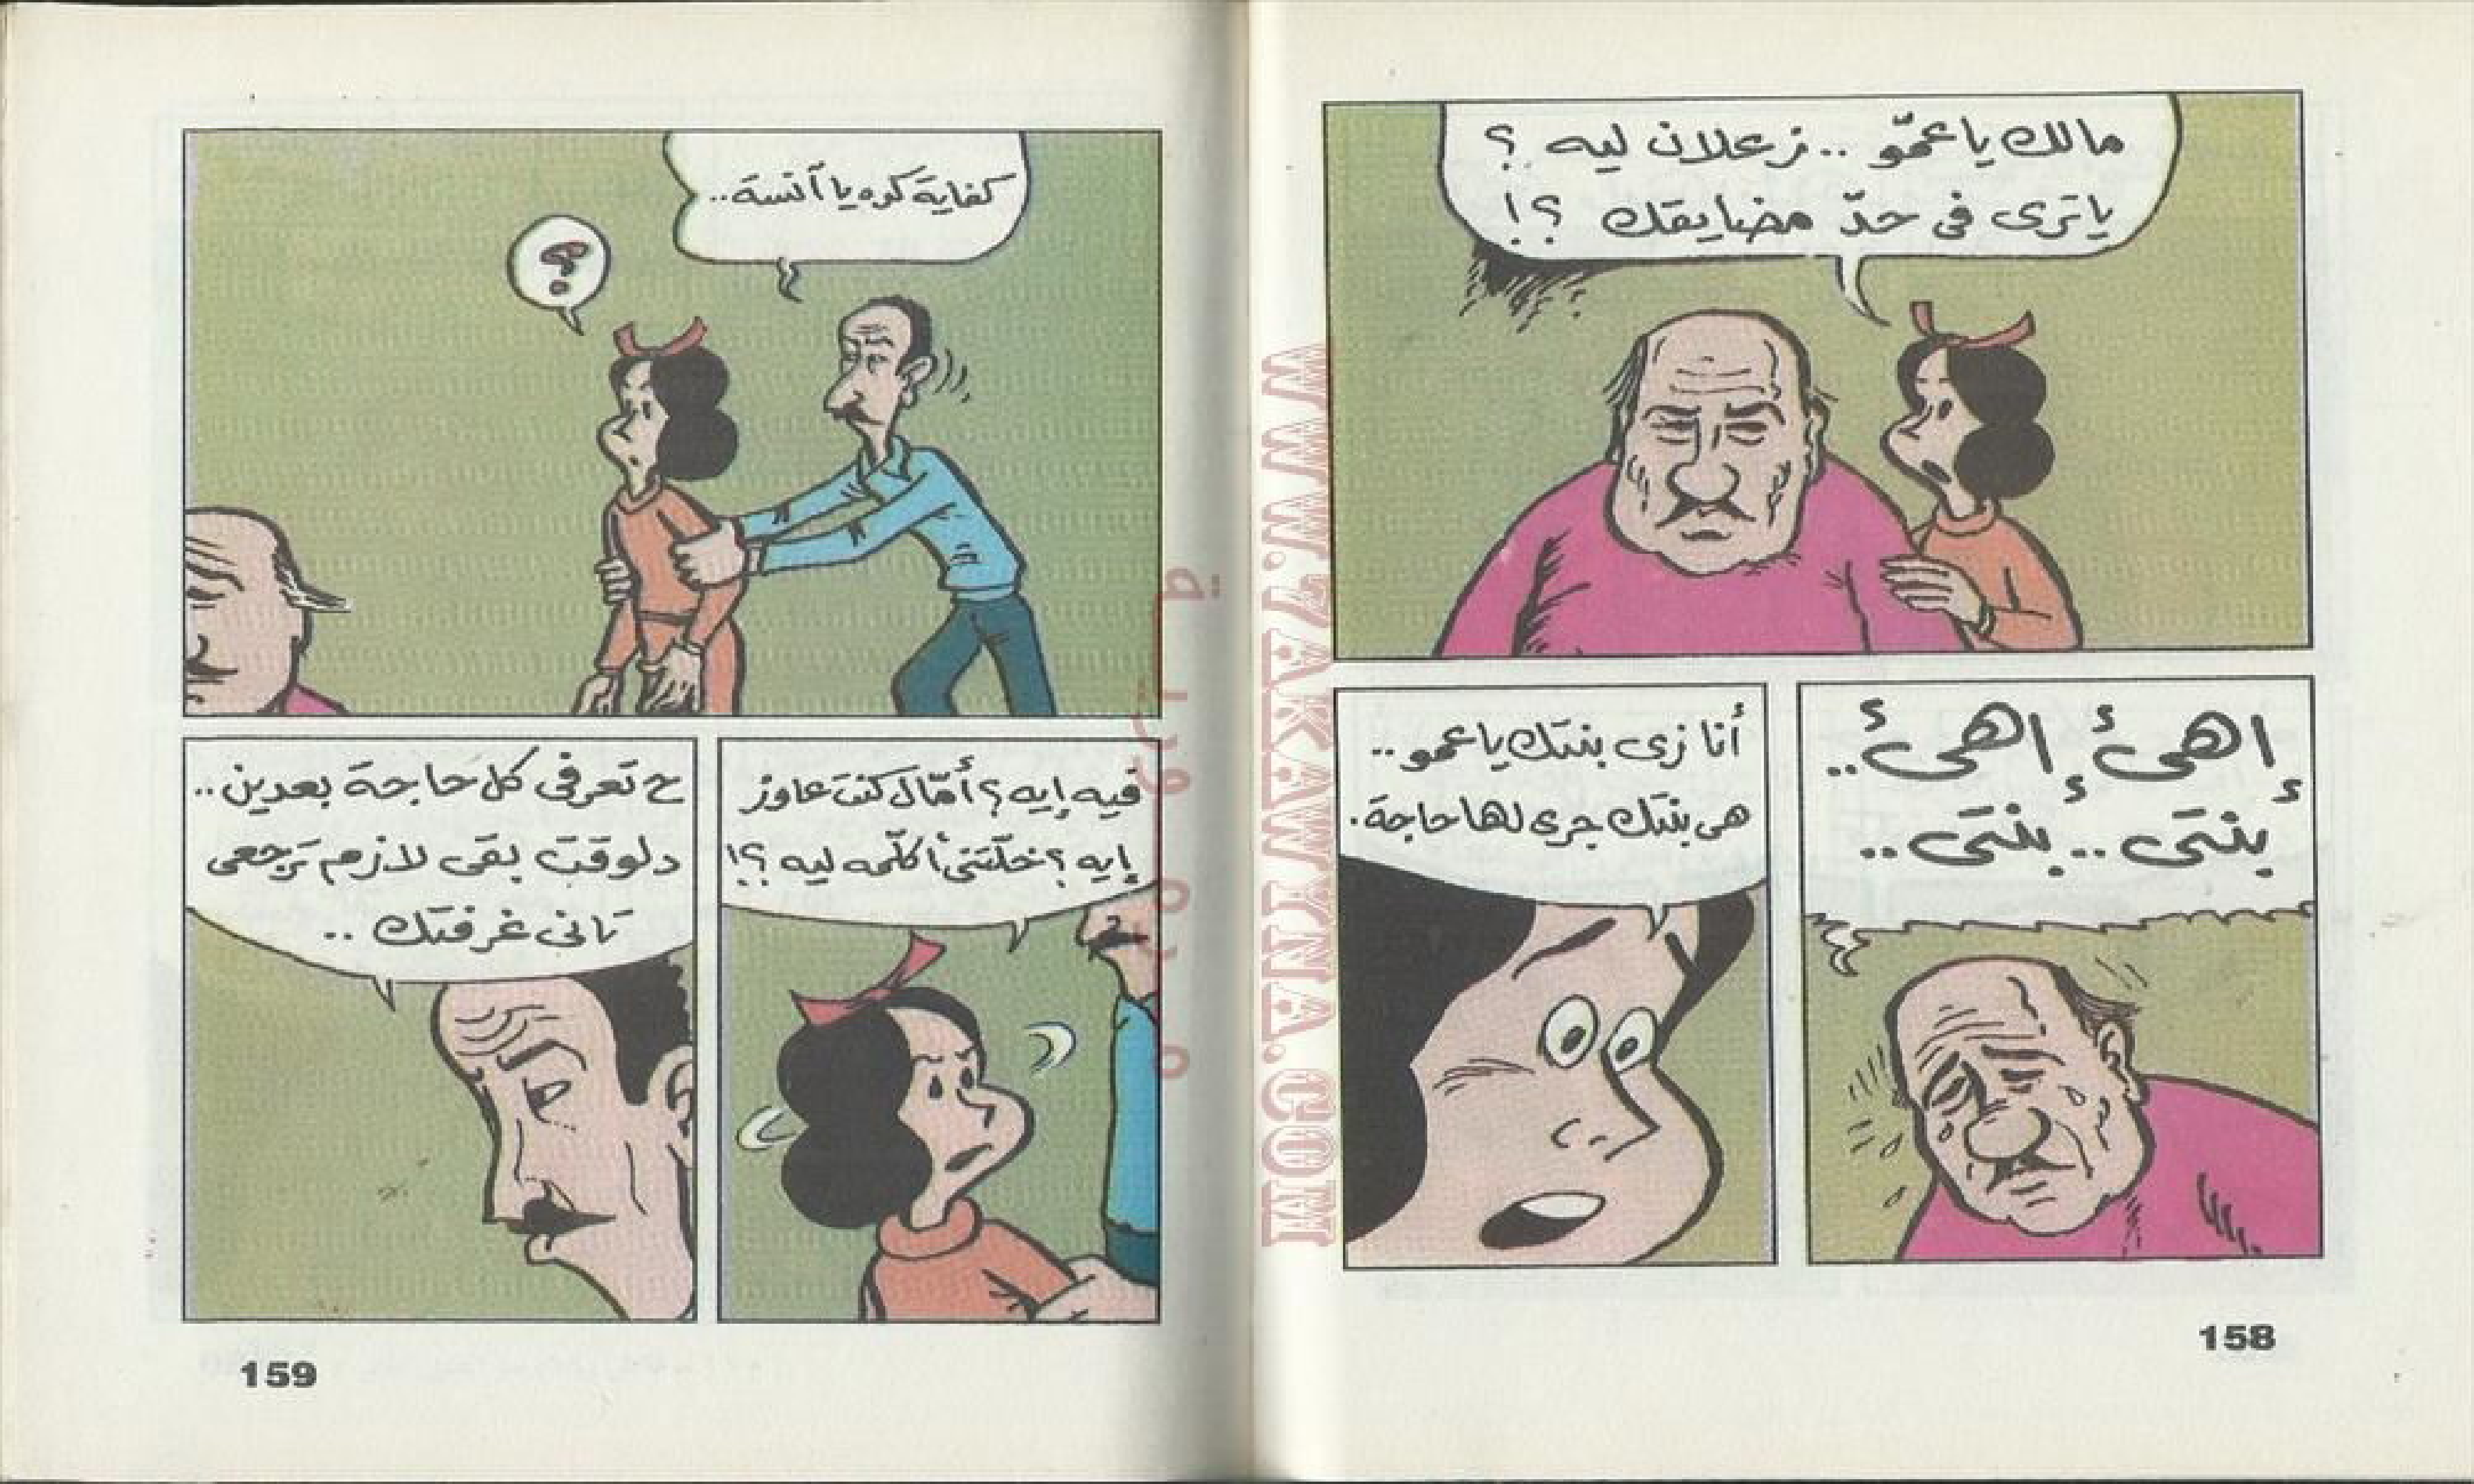 مالك ياعمّو .. زعلان ليه ؟
ياترى فى حدّ مضايقك ؟!
إهئ إهئ ..
إبنتى .. إبنتى ..
أنا زى بنتك ياعمو ..
هى بنتك جرى لها حاجة .
158
كفاية كده يا آنسة ..
؟
فيه إيه ؟ أمّال كنت عاوز
إيه ؟ خلّتنى أكلّمه ليه ؟!
ح تعرفى كل حاجة بعدين ..
دلوقت بقى لازم ترجعى
تانى غرفتك ..
159
WWW.7AKAWINA.COM